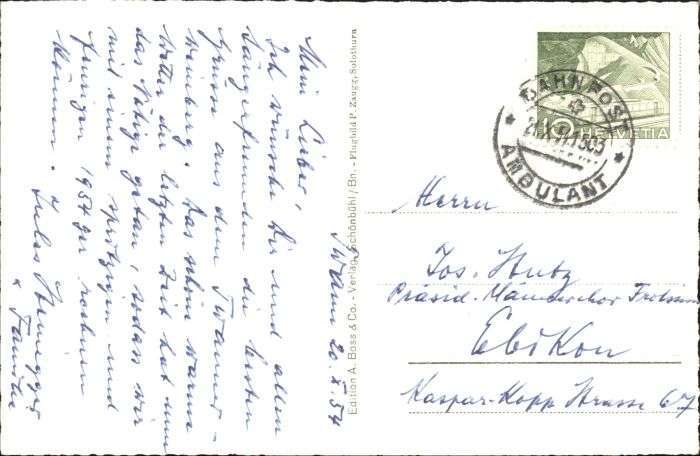 Twann 20. X. 54
Mein Lieber,
Ich wünsche Dir und allen
Sängerfreunden die besten
Grüsse aus dem Twanner-
weinberg. Das schöne warme
Wetter der letzten Zeit hat nun
das Nötige getan, sodass wir
mit einem spritzigen und
feurigen 1954ger rechnen
können. Jules
& Familie
Edition A. Boss & Co. - Verlag, Schönbühl/Bn. - Flugbild P. Zaugg, Solothurn
10 HELVETIA
BAHNPOST
AMBULANT
Herrn
Jos. Hutz
Präsid. Männerchor Frohsinn
Ebikon
Kaspar-Kopp Strasse 67